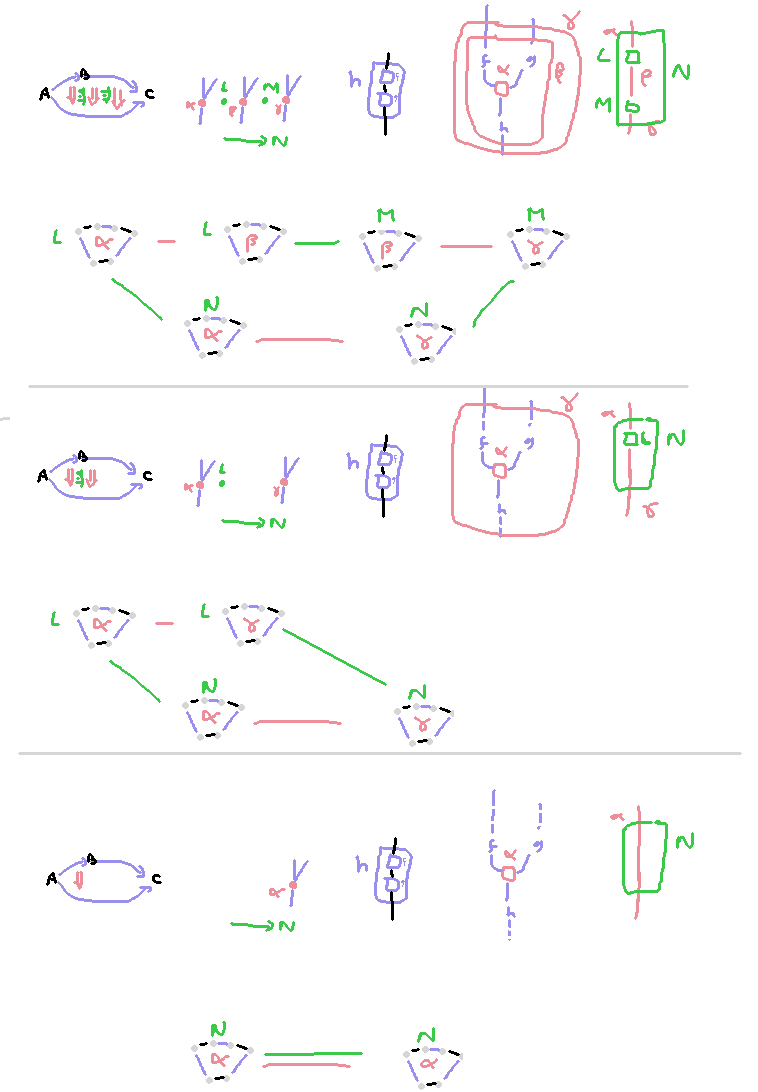 A B C α L β M γ N h f g α h β γ α L β M γ N
L α L β M β M γ
N α N γ
A B C α L γ N h f g α h γ α L N γ
L α L γ
N α N γ
A B C α N h f g α h α N
N α N α